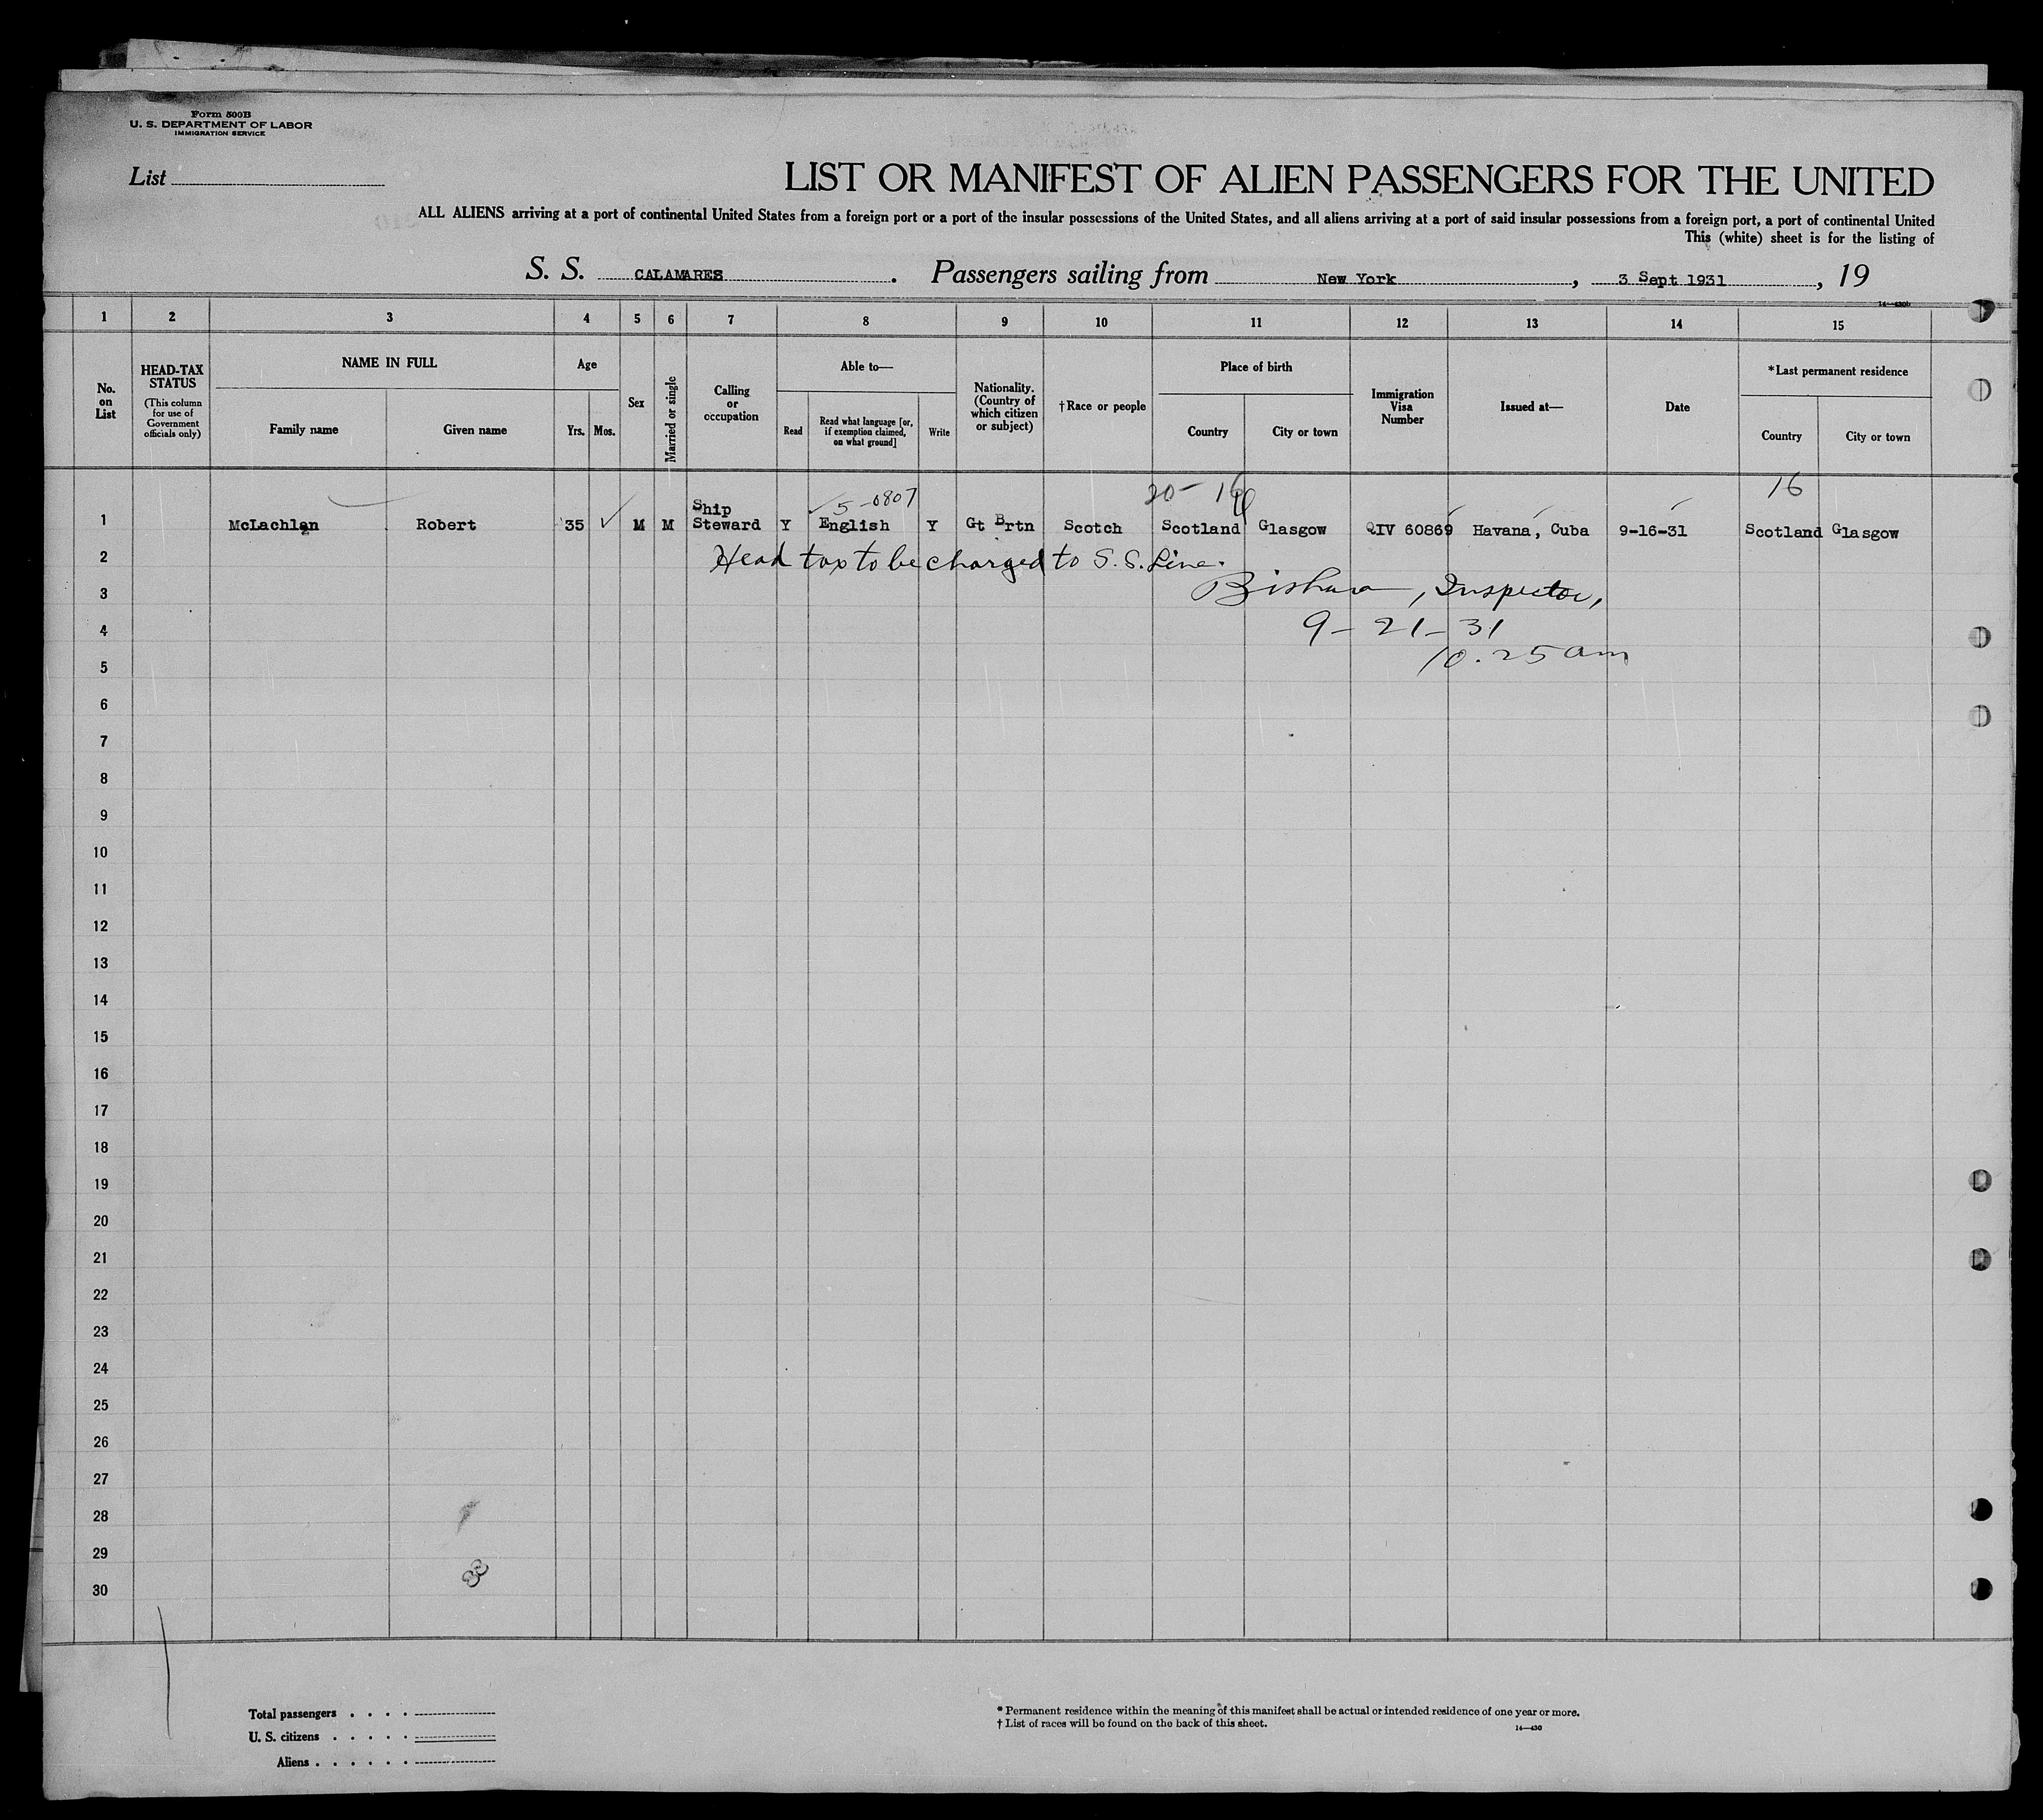 Form 500B
U. S. DEPARTMENT OF LABOR
IMMIGRATION SERVICE
List
LIST OR MANIFEST OF ALIEN PASSENGERS FOR THE UNITED
ALL ALIENS arriving at a port of continental United States from a foreign port or a port of the insular possessions of the United States, and all aliens arriving at a port of said insular possessions from a foreign port, a port of continental United
This (white) sheet is for the listing of
S. S. CALAMARES. Passengers sailing from New York, 3 Sept 1931, 19
14—430b
1 2 3 4 5 6 7 8 9 10 11 12 13 14 15
No. on List
HEAD-TAX STATUS
(This column for use of Government officials only)
NAME IN FULL
Family name
Given name
Age
Yrs.
Mos.
Sex
Married or single
Calling or occupation
Able to—
Read
Read what language [or, if exemption claimed, on what ground]
Write
Nationality. (Country of which citizen or subject)
†Race or people
Place of birth
Country
City or town
Immigration Visa Number
Issued at—
Date
*Last permanent residence
Country
City or town
5-0807
20-16
16
1 McLachlan Robert 35 M M Ship Steward Y English Y Gt Brtn Scotch Scotland Glasgow QIV 60869 Havana, Cuba 9-16-31 Scotland Glasgow
2 Head tax to be charged to S.S. Line.
3 , Inspector,
4 9-21-31
5 10.25 am
6
7
8
9
10
11
12
13
14
15
16
17
18
19
20
21
22
23
24
25
26
27
28
29
30
Total passengers . . . .
U. S. citizens . . . . .
Aliens . . . . . .
* Permanent residence within the meaning of this manifest shall be actual or intended residence of one year or more.
† List of races will be found on the back of this sheet.
14—430